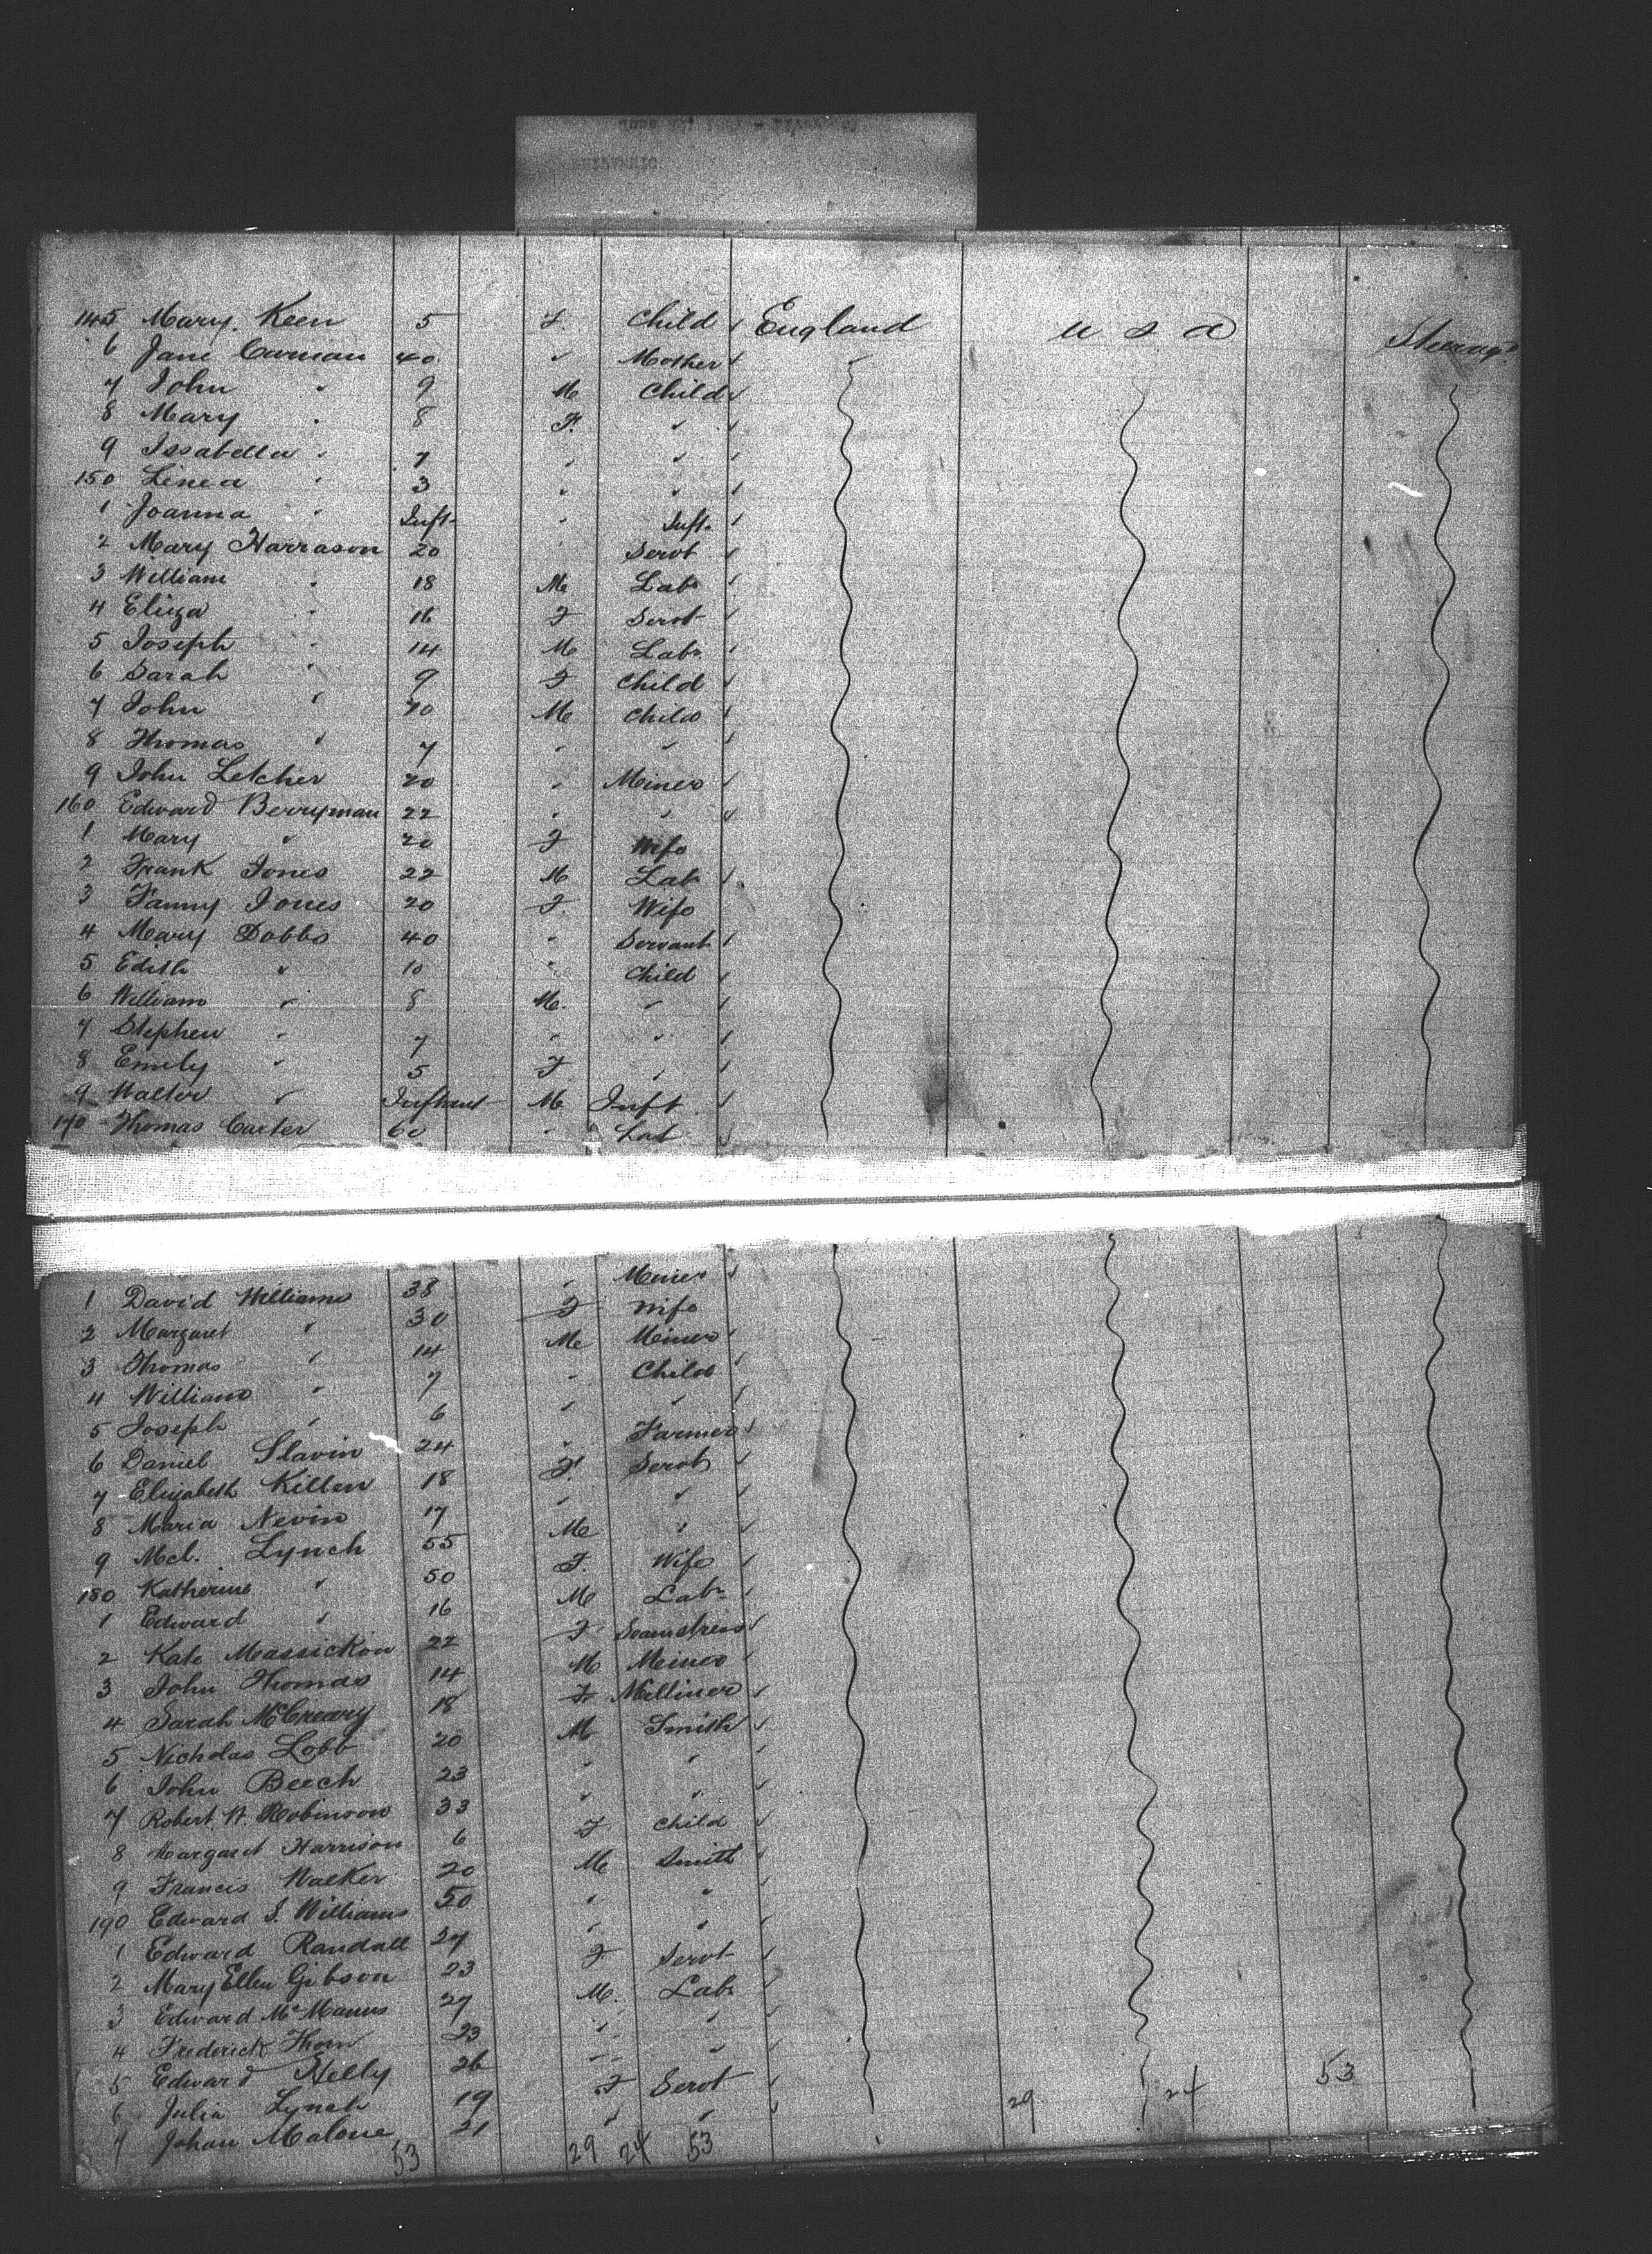 145 Mary. Keen 5 F. Child ✓ England U S A Steerage
6 Jane Curnian 40 " Mother
7 John " 9 M Child
8 Mary " 8 F. "
9 Issabella " 7 " "
150 Linea " 3 " "
1 Joanna " Inft. " Inft.
2 Mary Harrason 20 " Servt
3 William " 18 M Labr
4 Eliza " 16 F Servt
5 Joseph " 14 M Labr
6 Sarah " 9 F Child
7 John " 10 M Child
8 Thomas " 7 " "
9 John Letcher 20 " Miner
160 Edward Berryman 22 " "
1 Mary " 20 F Wife
2 Frank Jones 22 M Lab
3 Fanny Jones 20 F. Wife
4 Mary Dobbs 40 " Servant
5 Edith " 10 " Child
6 William " 8 M. "
7 Stephen " 7 " "
8 Emily " 5 F "
9 Walter " Infant M Inft
170 Thomas Carter 60 " Lab
1 David Williams 38 " Miner
2 Margaret " 30 F Wife
3 Thomas " 14 M Miner
4 William " 7 " Child
5 Joseph " 6 " "
6 Daniel Slavin 24 " Farmer
7 Elizabeth Killen 18 F. Servt
8 Maria Nevin 17 " "
9 Mcl. Lynch 55 M "
180 Katherine " 50 F. Wife
1 Edward " 16 M Labr
2 Kate Massickon 22 F Seamstress
3 John Thomas 14 M Miner
4 Sarah McCreary 18 F Milliner
5 Nicholas Lobb 20 M Smith
6 John Beech 23 " "
7 Robert W. Robinson 33 " "
8 Margaret Harrison 6 F Child
9 Francis Walker 20 M Smith
190 Edward J. Williams 50 " "
1 Edward Randall 27 " "
2 Mary Ellen Gibson 23 F Servt
3 Edward McManus 27 M. Labr
4 Frederick Thorn 23 " "
5 Edward Kelly 26 " "
6 Julia Lynch 19 F Servt
7 Johan Malone 21 " "
53 29 24 53 29 24 53